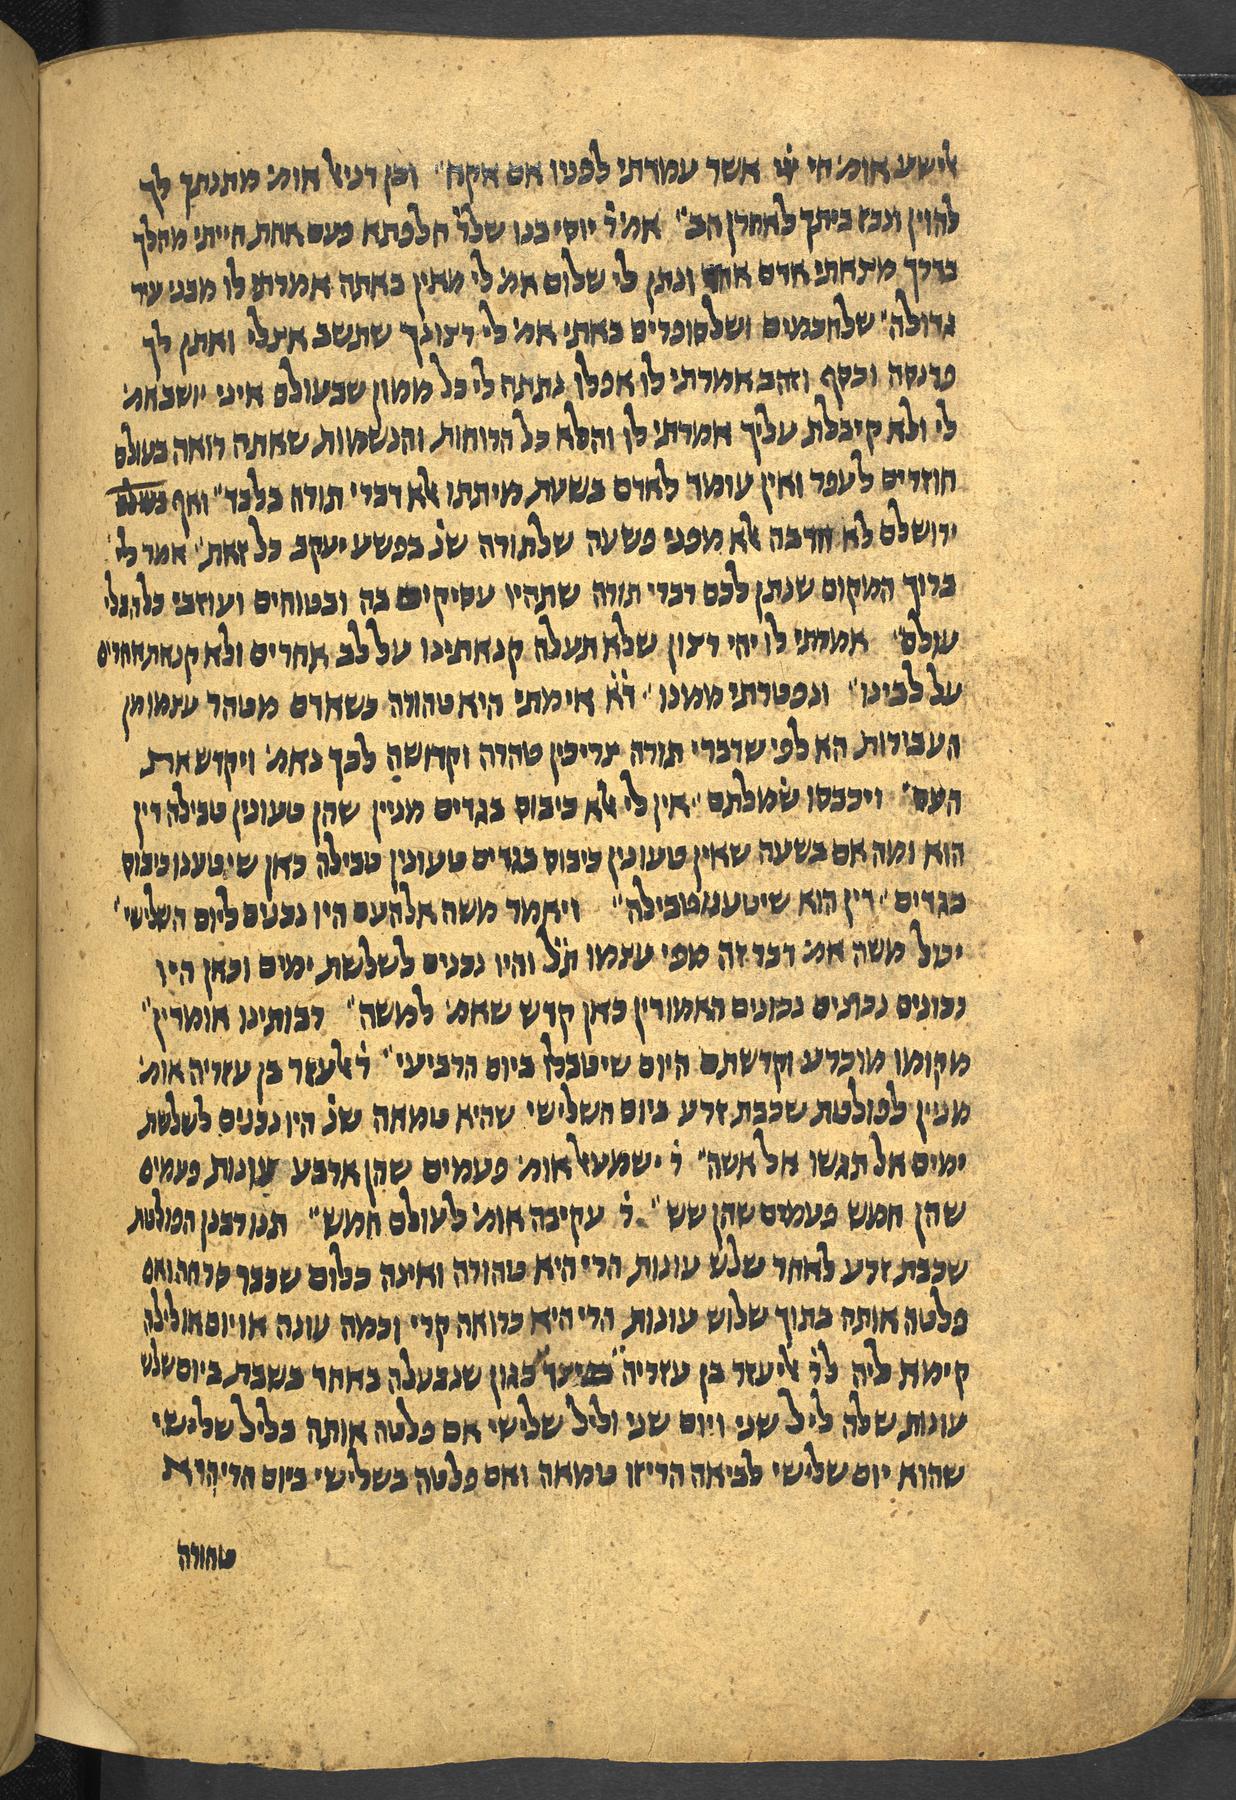 אלישע אומ׳ חי ייי אשר עמדתי לפניו אם אקח״ וכן דניאל אומ׳ מתנתך לך
להוין ונבז ביתך לאחרן הב״ אמ׳ ר׳ יוסי בנו שלר׳ חלפתא פעם אחת הייתי מהלך
בדרך מצאתי אדם אחד ונתן לי שלום אמ׳ לי מאין באתה אמרתי לו מבני עיר
גדולה״ שלחכמים ושלסופרים באתי אמ׳ לי רצונך שתשב אצלי ואתן לך
פרנסה וכסף וזהב אמרתי לו אפלו נתתה לי כל ממון שבעולם איני יושב אמ׳
לי ולא קיבלת עליך אמרתי לו והלא כל הרוחות והנשמות שאתה רואה בעולם
חוזרים לעפר ואין עומד לאדם בשעת מיתתו אלא דברי תורה בלבד״ ואף
ירושלם לא חרבה אלא מפני פשעה שלתורה שנ׳ בפשע יעקב כל זאת״ אמר לי׳
ברוך המקום שנתן לכם דברי תורה שתהיו עסיקים בה ובטוחים ועוזבי כל הבלי
עולם״ אמרתי לו יהי רצון שלא תעלה קנאתינו על לב אחרים ולא קנאת אחרים
על לבינו״ ונפטרתי ממנו״ ד׳א׳ אימתי היא טהורה כשאדם מטהר עצמו מן
העבירות הא לפי שדברי תורה צריכין טהרה וקדושה לכך נאמ׳ ויקדש את
העם״ ויכבסו שמלתם״ אין לי אלא כיבוס בגדים מניין שהן טעונין טבילה דין
הוא ומה אם בשעה שאין טעונין כיבוס בגדים טעונין טבילה כאן שיטענו כיבוס
בגדים״ דין הוא שיטענו טבילה״ ויאמר משה אל העם היו נכנים ליום השלישי״
יכול משה אמ׳ דבר זה מפי עצמו ת״ל והיו נכנים לשלשת ימים וכאן היו
נכונים נכונים נכונים האמורין כאן קדש שאמ׳ למשה״ רבותינו אומרין״
מקומו מוכרע וקדשתם היום שיטבלו ביום הרביעי״ ר׳ אלעזר בן עזריה אומ׳
מניין לפולטת שכבת זרע ביום השלישי שהיא טמאה שנ׳ היו נכנים לשלשת
ימים אל תגשו אל אשה״ ר׳ ישמעאל אומ׳ פעמים שהן ארבע עונות פעמים
שהן חמש פעמים שהן שש״ ר׳ עקיבה אומ׳ לעולם חמש״ תנו רבנן הפולטת
שכבת זרע לאחר שלש עונות הרי היא טהורה ואינה כלום שכבר סרחה ואם
פלטה אותה בתוך שלוש עונות הרי היא כרואה קרי וכמה עונה או יום או לילה
קימא ליה לר׳ אליעזר בן עזריה״ כגון שנבעלה באחד בשבת ביום שלש
עונות שלה ליל שני ויום שני וליל שלישי אם פלטה אותה בליל שלישי
שהוא יום שלישי לביאה הרי זו טמאה ואם פלטה בשלישי ביום הרי היא
טהורה